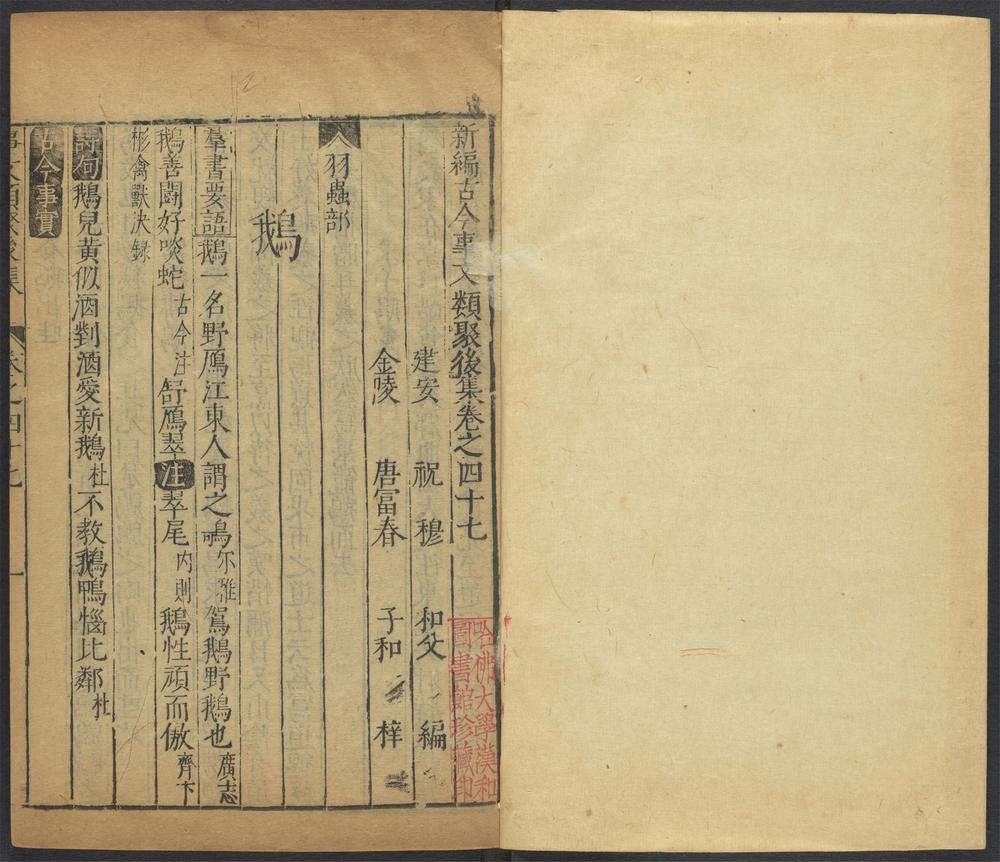 新編古今事文類聚後集卷之四十七
建安 祝 穆 和父 編
金陵 唐冨春 子和 梓
羽蟲部
鵝
羣書要語 鵝一名野鴈江東人謂之鳴尔雅駕鵝野鵝也廣志
鵝善鬪好啖蛇古今注舒鴈翠注翠尾内則鵝性頑而傲齊卞
彬禽獸决録
詩句 鵝兒黃似酒對酒愛新鵝杜不教鵝鴨惱比鄰杜
古今事實
事文類聚後集 卷之四十七 一
哈佛大學漢和
圖書館珍藏印